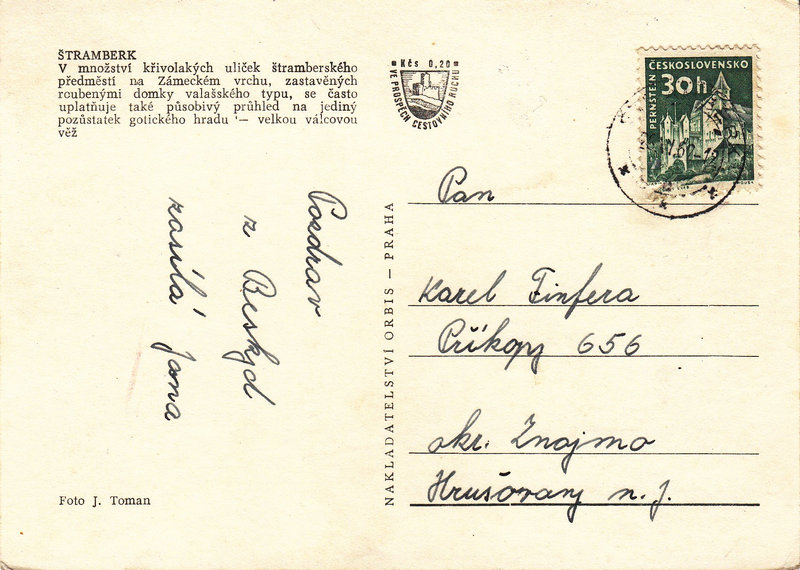 ŠTRAMBERK
V množství křivolakých uliček štramberského
předměstí na Zámeckém vrchu, zastavěných
roubenými domky valašského typu, se často
uplatňuje také působivý průhled na jediný
pozůstatek gotického hradu — velkou válcovou
věž
Kčs 0,20
VE PROSPĚCH CESTOVNÍHO RUCHU
ČESKOSLOVENSKO
30h
PERNŠTEJN
Pozdrav
z Beskyd
zasílá Jana
NAKLADATELSTVÍ ORBIS — PRAHA
Pan
Karel Finfera
Příkopy 656
okr. Znojmo
Hrušovany n. J.
Foto J. Toman